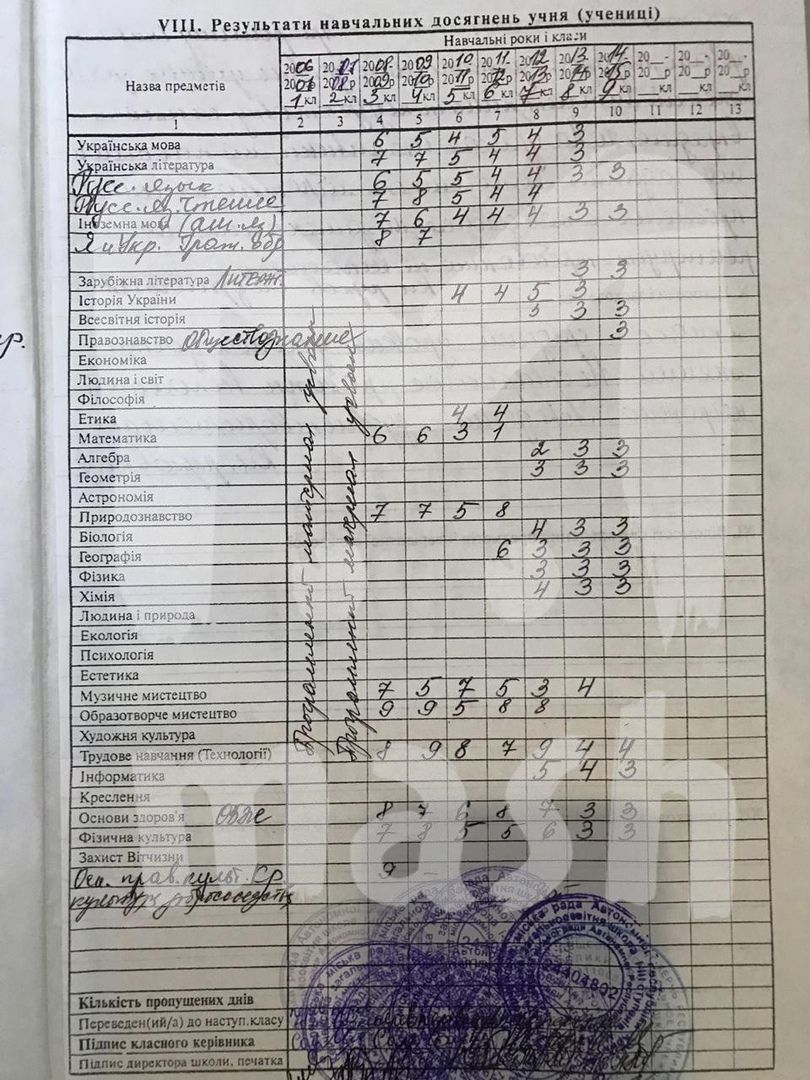 VIII. Результати навчальних досягнень учня (учениці)
Назва предметів
Навчальні роки і класи
2006 2007 2008 2009 2010 2011 2012 2013 2014 20__- 20__- 20__-
2007 2008р 2009р 2010р 2011р 2012р 2013р 2014 2015р 20__р 20__р 20__р
1 кл 2 кл 3 кл 4 кл 5 кл 6 кл 7 кл 8 кл 9 кл __кл __кл __кл
1 2 3 4 5 6 7 8 9 10 11 12 13
Українська мова 6 5 4 5 4 3
Українська література 7 7 5 4 4 3
Русс. язык 6 5 5 4 4 3 3
Русс. яз. чтение 7 8 5 4 4
Іноземна мова (анг. яз) 7 6 4 4 4 3 3
Я и Укр. Граж. обр 8 7
Зарубіжна література Литерат. 3 3
Історія України 4 4 5 3
Всесвітня історія 5 3 3
Правознавство Обществознание 3
Економіка
Людина і світ
Філософія
Етика 4 4
Математика 6 6 3 1
Алгебра 2 3 3
Геометрія 3 3 3
Астрономія
Природознавство 7 7 5 8
Біологія 4 3 3
Географія 6 3 3 3
Фізика 3 3 3
Хімія 4 3 3
Людина і природа
Екологія
Психологія
Естетика
Музичне мистецтво 7 5 7 5 3 4
Образотворче мистецтво 9 9 5 8 8
Художня культура
Трудове навчання (Технології) 8 9 8 7 9 4 4
Інформатика 5 4 3
Креслення
Основи здоров'я ОБЖ 8 7 6 8 7 3 3
Фізична культура 7 8 5 5 6 3 3
Захист Вітчизни
Осн. прав. культ. Кр. 9 –
культура добрососедства
Програмний материал усвоил
Програмний материал усвоил
Кількість пропущених днів
Переведен(ий/а) до наступ.класу
Підпис класного керівника
Підпис директора школи, печатка
24404892
rash